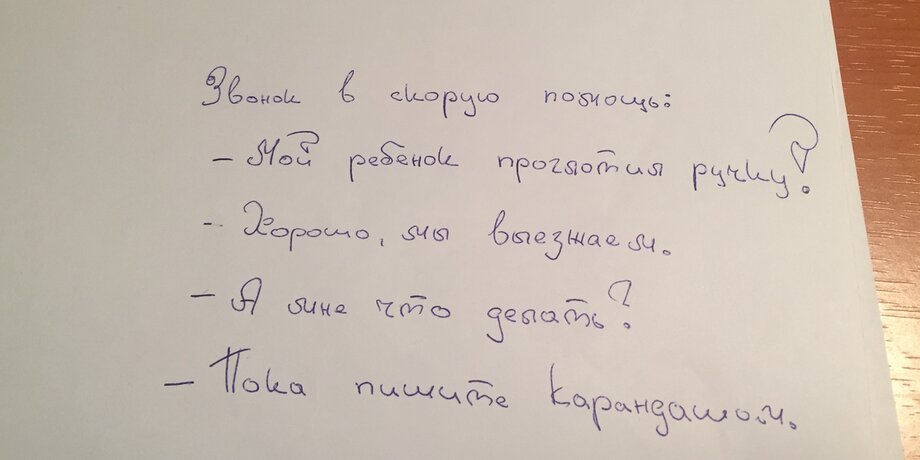 Звонок в скорую помощь:
- Мой ребенок проглотил ручку!
- Хорошо, мы выезжаем.
- А мне что делать?
- Пока пишите карандашом.